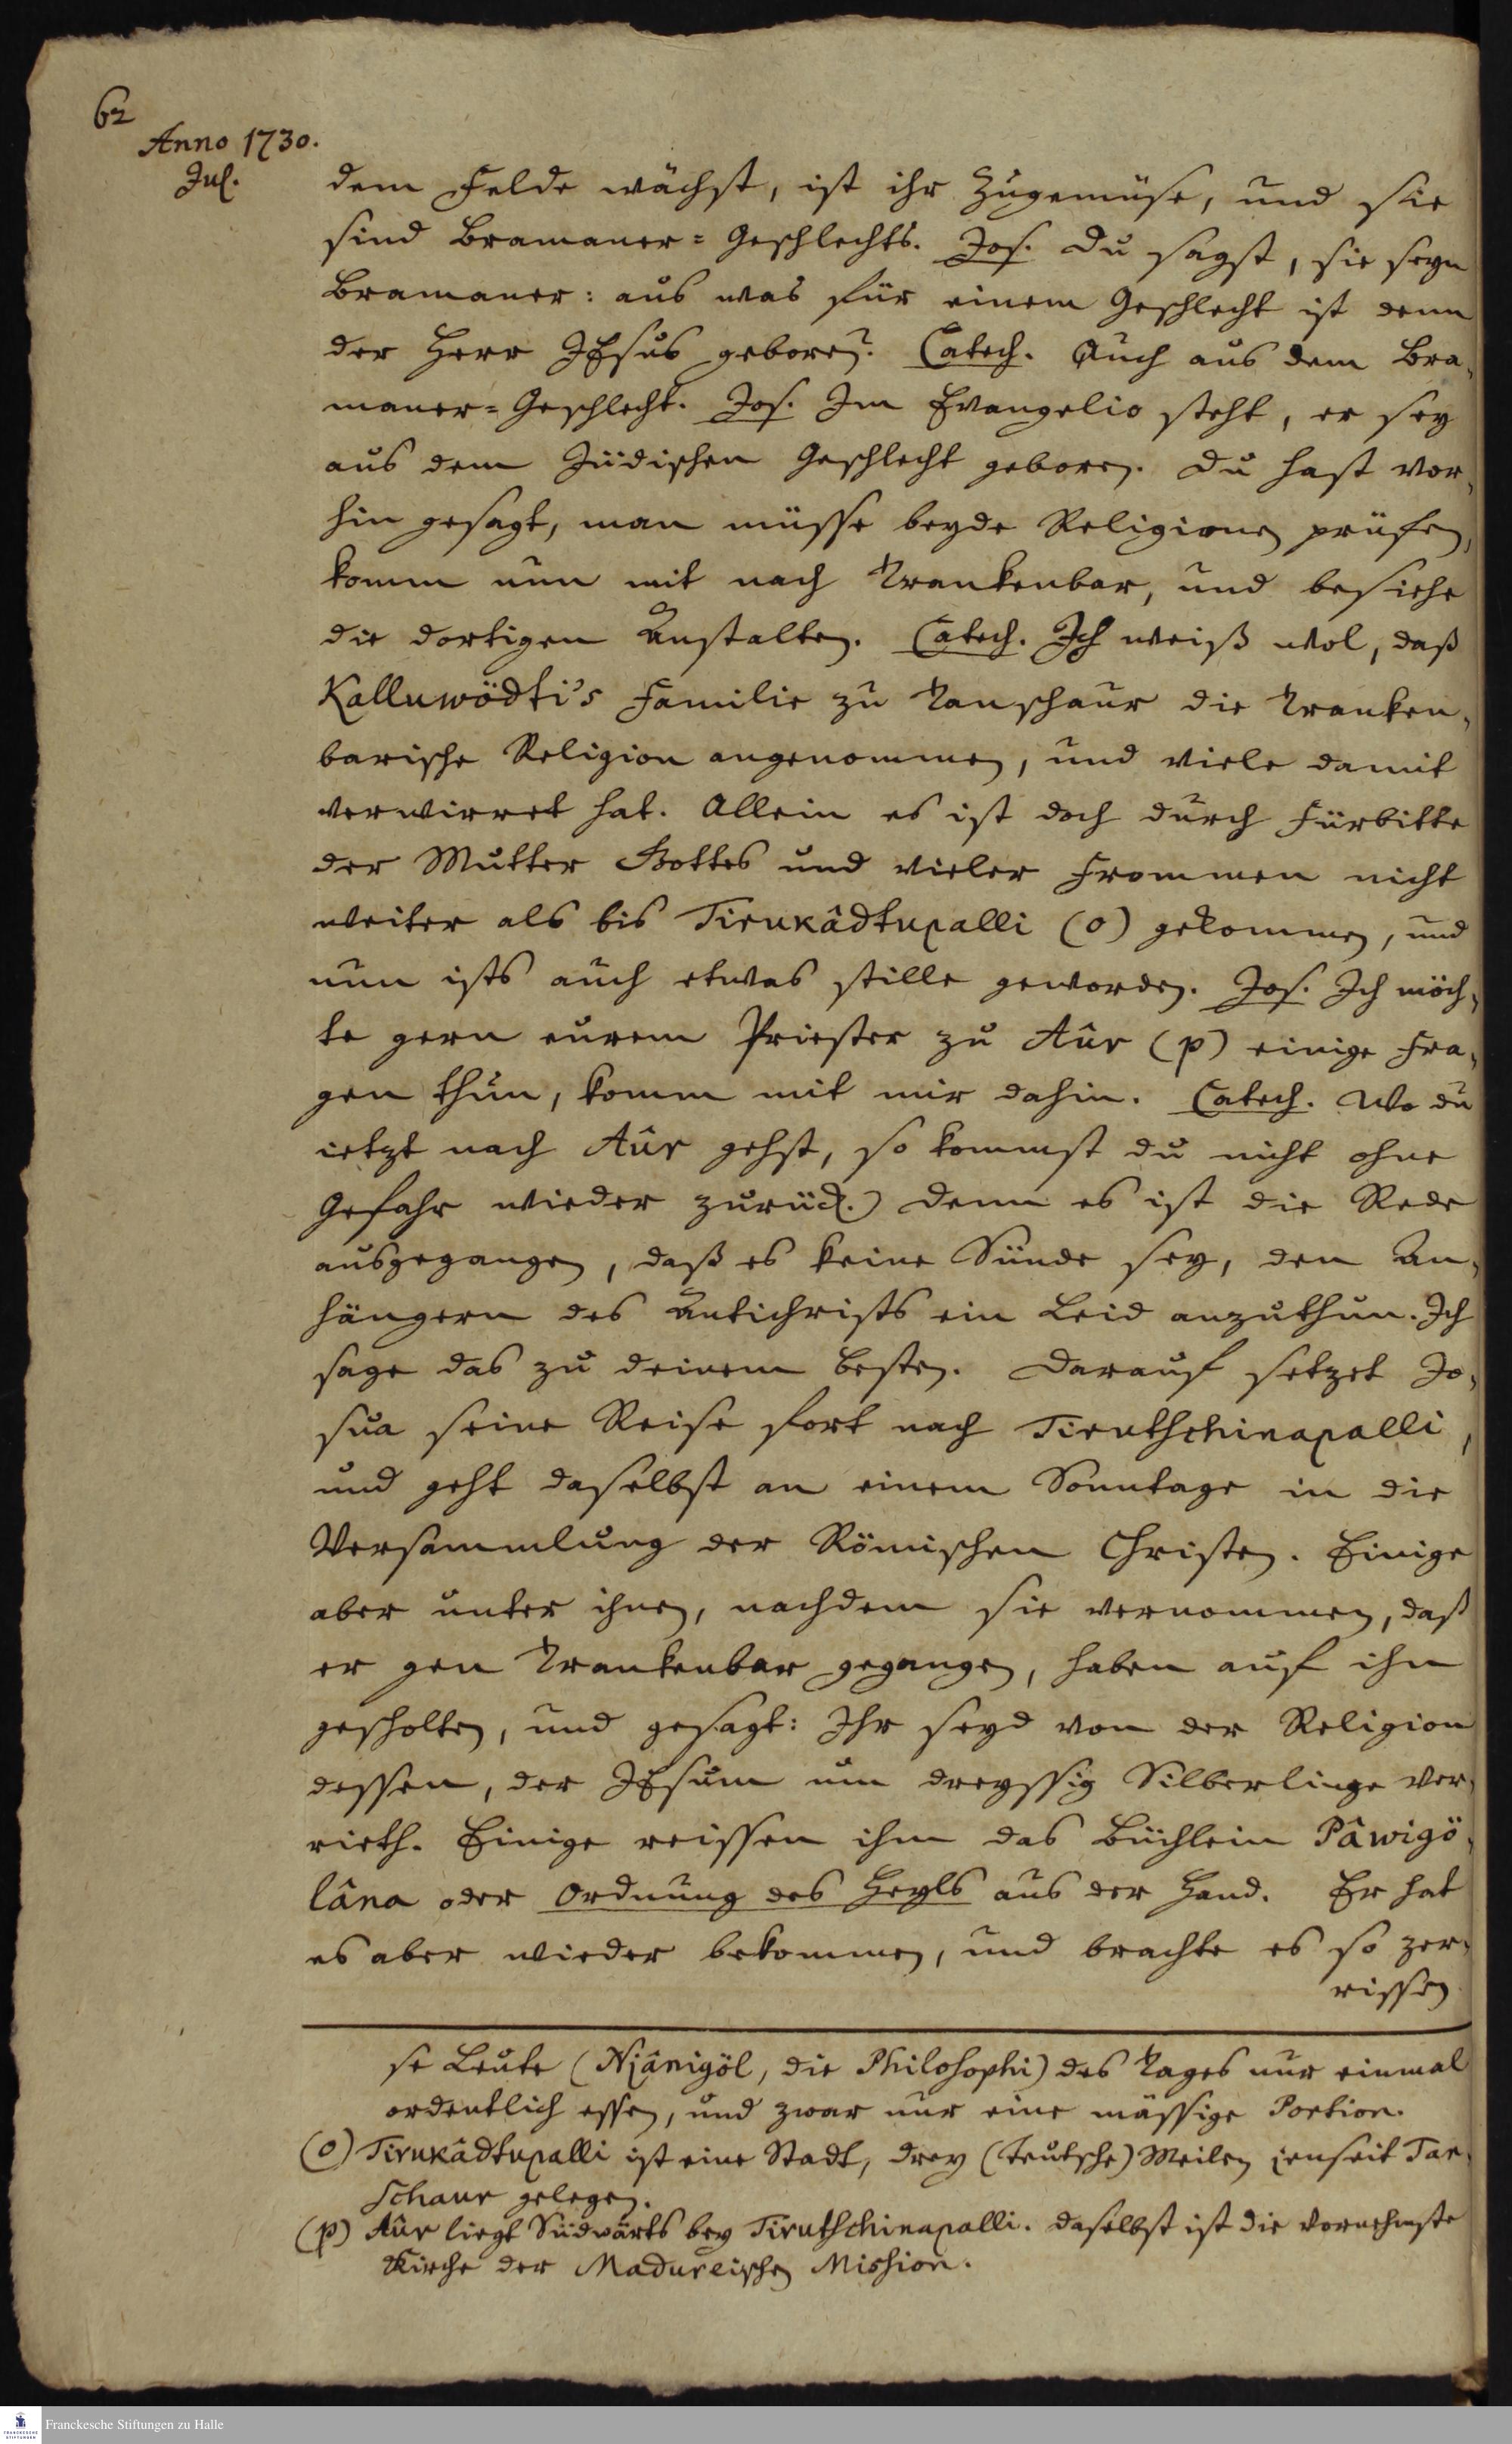 62
Anno 1730.
Jul.
dem Felde wächst, ist ihr Zugemüse, und sie
sind Bramaner-Geschlechts. Jos. Du sagst, sie seyn
Bramaner: aus was für einem Geschlecht ist denn
der Herr JEsus geboren? Catech. Auch aus dem Bra-
maner-Geschlecht. Jos. Im Evangelio steht, er sey
aus dem Jüdischen Geschlecht geboren. Du hast vor-
hin gesagt, man müsse beyde Religionen prüfen,
komm nun mit nach Trankenbar, und besiehe
die dortigen Anstalten. Catech. Ich weiß wol, daß
Kalluwödti's Familie zu Tanschaur die Tranken-
barische Religion angenommen, und viele damit
verwirret hat. Allein es ist doch durch Fürbitte
der Mutter Gottes und vieler Frommen nicht
weiter als bis Tirukâdtupalli (o) gekommen, und
nun ists auch etwas stille geworden. Jos. Ich möch-
te gern eurem Priester zu Aûr (p) einige Fra-
gen thun, komm mit mir dahin. Catech. Wo du
ietzt nach Aûr gehst, so kommst du nicht ohne
Gefahr wieder zurück.) Denn es ist die Rede
ausgegangen, daß es keine Sünde sey, den An-
hängern des Antichrists ein Leid anzuthun. Ich
sage das zu deinem Besten. Darauf setzet Jo-
sua seine Reise fort nach Tirutschinapalli,
und geht daselbst an einem Sonntage in die
Versammlung der Römischen Christen. Einige
aber unter ihnen, nachdem sie vernommen, daß
er gen Trankenbar gegangen, haben auf ihn
gescholten, und gesagt: Ihr seyd von der Religion
dessen, der JEsum um dreyssig Silberlinge ver-
rieth. Einige reissen ihm das Büchlein Pâwigö-
lâna oder Ordnung des Heyls aus der Hand. Er hat
es aber wieder bekommen, und brachte es so zer-
rissen
se Leute (Njânigöl, die Philosophi) des Tages nur einmal
ordentlich essen, und zwar nur eine mässige Portion.
(o) Tirukâdtupalli ist eine Stadt, drey (Teutsche) Meilen jenseit Tan-
schaur gelegen.
(p) Aûr liegt Südwärts bey Tirutschinapalli. Daselbst ist die vornehmste
Kirche der Madureischen Mission.
Franckesche Stiftungen zu Halle